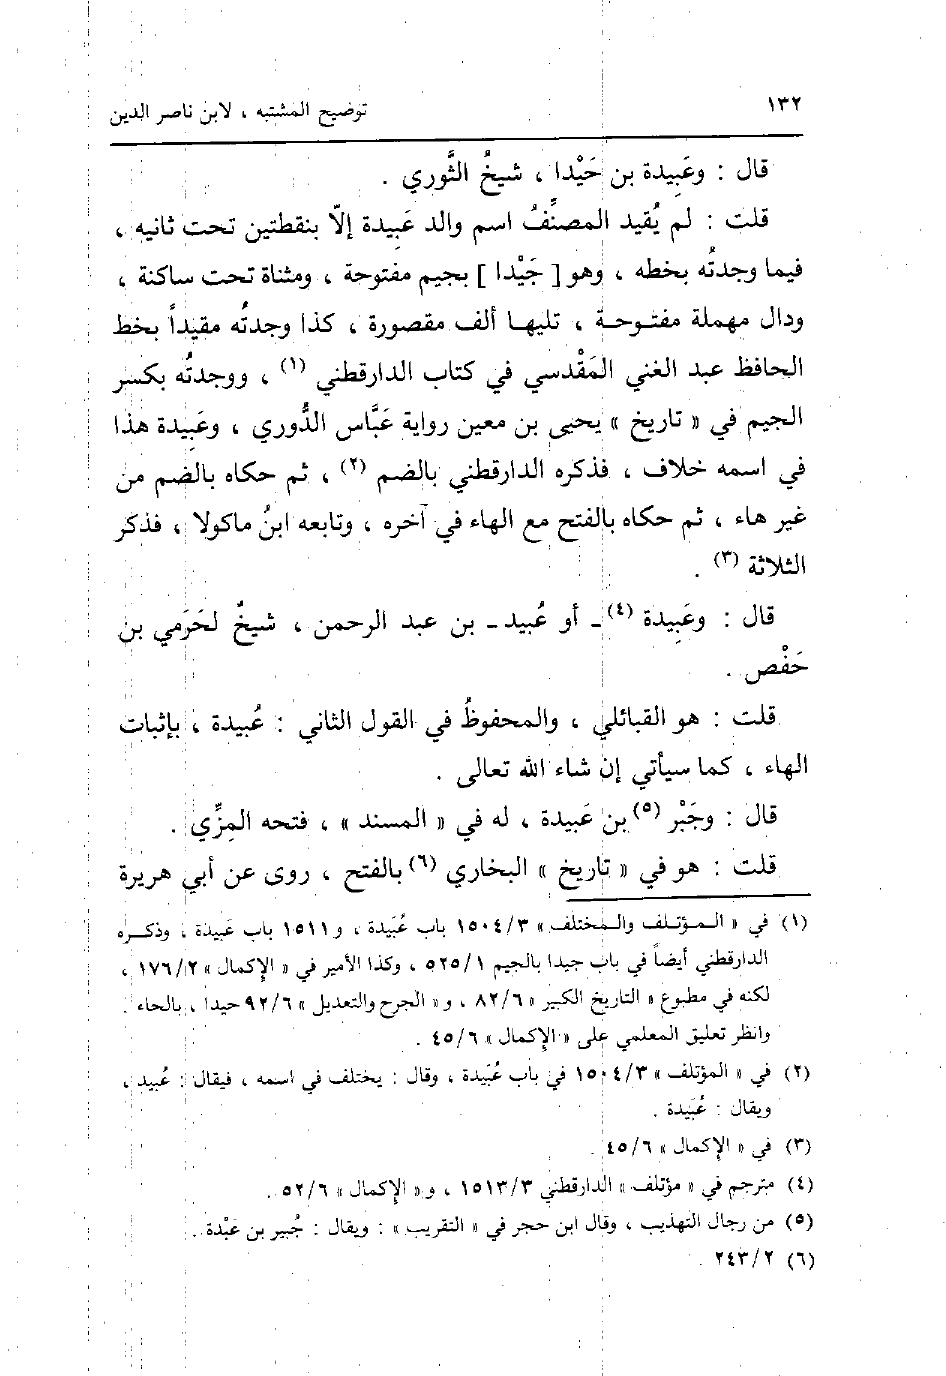 ١٣٢
توضيح المشتبه ، لابن ناصر الدين
قال : وعَبِيدة بن حَيْدا ، شيخُ الثَّوري .
قلت : لم يُقيد المصنِّفُ اسم والد عَبِيدة إلاّ بنقطتين تحت ثانيه ،
فيما وجدتُه بخطه ، وهو [ جَيْدا ] بجيم مفتوحة ، ومثناة تحت ساكنة ،
ودال مهملة مفتوحة ، تليها ألف مقصورة ، كذا وجدتُه مقيداً بخط
الحافظ عبد الغني المَقْدسي في كتاب الدارقطني (١) ، ووجدتُه بكسر
الجيم في « تاريخ » يحيى بن معين رواية عَبَّاس الدُّوري ، وعَبِيدة هذا
في اسمه خلاف ، فذكره الدارقطني بالضم (٢) ، ثم حكاه بالضم من
غير هاء ، ثم حكاه بالفتح مع الهاء في آخره ، وتابعه ابنُ ماكولا ، فذكر
الثلاثة (٣) .
قال : وعَبِيدة (٤) ـ أو عُبيد ـ بن عبد الرحمن ، شيخٌ لحَرَمي بن
حَفْص .
قلت : هو القبائلي ، والمحفوظُ في القول الثاني : عُبيدة ، بإثبات
الهاء ، كما سيأتي إن شاء الله تعالى .
قال : وجَبْر (٥) بن عَبيدة ، له في « المسند » ، فتحه المِزِّي .
قلت : هو في « تاريخ » البخاري (٦) بالفتح ، روى عن أبي هريرة
(١) في « المؤتلف والمختلف » ١٥٠٤/٣ باب عُبَيدة ، و١٥١١ باب عَبيدة ، وذكره
الدارقطني أيضاً في باب جيدا بالجيم ٥٢٥/١ ، وكذا الأمير في « الإكمال » ١٧٦/٢ ،
لكنه في مطبوع « التاريخ الكبير » ٨٢/٦ ، و« الجرح والتعديل » ٩٢/٦ حيدا ، بالحاء .
وانظر تعليق المعلمي على « الإكمال » ٤٥/٦ .
(٢) في « المؤتلف » ١٥٠٤/٣ في باب عُبَيدة ، وقال : يختلف في اسمه ، فيقال : عُبيد ،
ويقال : عُبَيدة .
(٣) في « الإكمال » ٤٥/٦ .
(٤) مترجم في « مؤتلف » الدارقطني ١٥١٣/٣ ، و« الإكمال » ٥٢/٦ .
(٥) من رجال التهذيب ، وقال ابن حجر في « التقريب » : ويقال : جُبير بن عَبْدة .
(٦) ٢٤٣/٢ .